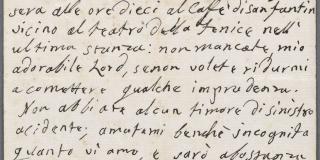 sera alle ore dieci al Caffè di Santantin
vicino al teatro della fenice nell'
ultima stanza: non mancate, mio
adorabile Lord, se non volete ridurmi
a comettere qualche imprudenza.
Non abbiate alcun timore di sinistro
accidente; amatemi benchè incognita
quanto vi amo, e sarò abostanza